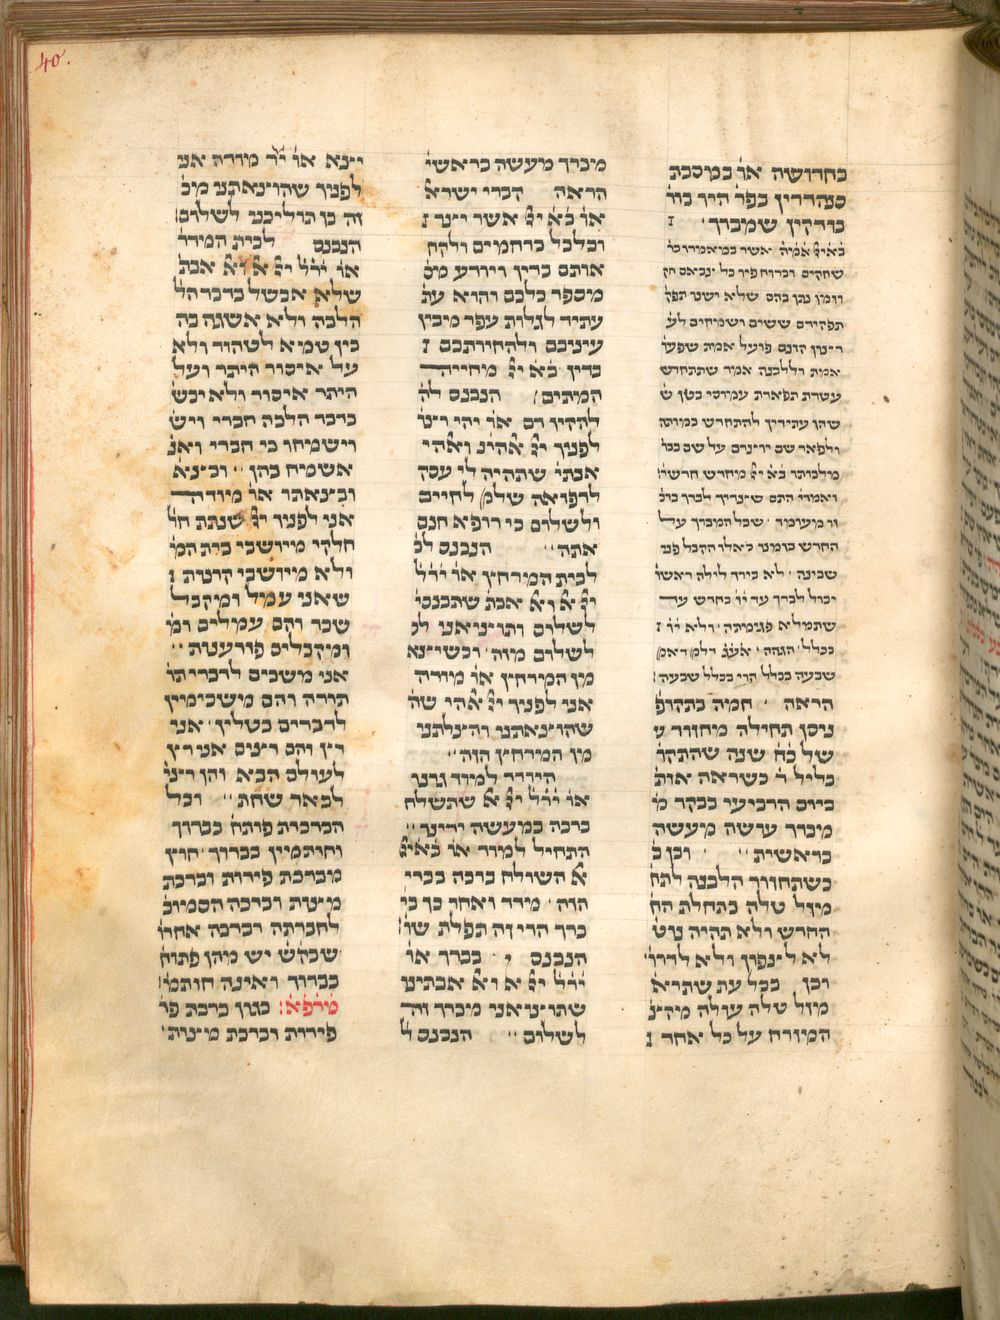 40.
בחדושה או במסכת
סנהדרין בפר היו בור
בדרקין שמברך
באי אמה אשר במאמרו בר
שחקים וברוח פיו כל צבאם חק
וזמן נתן בהם שלא ישנו תפק
תפקידם ששים ושמיחים לע
רצון קונם פועל אמת שפעו
אמת וללבנה אמר שתתחדש
עטרת תפארת עמוסי בטן ש
שהן עתידין להתחדש כמותה
ולפאר שם יוצרם על שם כבו
מלכותו בא יי מחדש חדשי
ואמרי התם שצריך לברך ברב
ור מעומד שכל המברך על
החדש בזמנו כאלו הקבל פני
שכינה לא בירך לילה ראשו
יכול לברך עד יו בחדש עד
שתמלא פגימתה ולא יו
בכלל הגהה
שבעה בכלל הרי בכלל שבעה
הראה חמה בתקופ
ניסן תחילה מחזור ע
של כח שנה שהתקו
בליל ד כשראה אות
ביום הרביעי בבקר מ
מברך עושה מעשה
בראשית וכן ב
כשתחזור הלבנה לתח
מזל טלה בתחלת הח
החדש ולא תהיה נוט
לא לצפון ולא לדרו
וכן בכל עת שתרא
מזל טלה עולה מיהצ
המזרח על כל אחד
מברך מעשה בראשי
הראה קברי ישרא
או בא יי אשר יצר
וכלכל ברחמים ולקח
אותם בדין ויודע מס
מספר כלכם והוא עת
עתיד לגלות עפר מבין
עיניכם ולהחיותכם
בדין בא יי מחייה
המתים הנכנס לה
להקיז דם או יהי רצו
לפניך יי אהינו ואהי
אבתי שתהיה לי עסק
לרפואה שלמ לחיים
ולשלום כי רופא חנם
אתה הנכנס לב
לבית המרחץ או
יי א וא אבת שתכנסי
לשלום ותוציאני לפ
לשלום מזה וכשיצא
מן המרחץ או מודה
אני לפניך יי אהי שה
שהוצאתנו והצלתנו
מן המרחץ הזה
היורד למוד גרנו
או יי א שתשלח
ברכה במעשה ידינו
התחיל למוד או באי
א השולח ברכה בכרי
הזה מדד ואחר כך בי
ברך הרי זה תפלת שו
הנכנס בכרך או
יי א וא אבתינו
שתוציאני מכרך זה
לשלום הנכנס ל
יצא או מודה אני
לפניך שהוצאתני מכ
זה כן תוליכני לשלום
הנכנס לבית המדר
או יי א וא אבת
שלא אכשל בדבר הל
הלכה ולא אשגה בה
בין טמא לטהור ולא
על איסור היתר ועל
היתר איסור ולא יכש
בדבר הלכה חברי ויש
וישמחו בי חברי ואנ
אשמח בהן וביצא
וביצאתו או מודה
אני לפניך יי שנתת חל
חלקי מיושבי בית המ
ולא מיושבי קרנות
שאני עמל ומקבל
שכר והם עמלים ומ
ומקבלים פורענות
אני משכים לדברי תו
תורה והם משכימין
לדברים בטלין אני
רץ והם רצים אני רץ
לעולם הבא והן רצי
לבאר שחת וכל
הברכות פותח בברוך
וחותמין בברוך חוץ
מברכת פירות וברכת
מצות וברכה הסמוכ
לחברתה וברכה אחרו
שבקש יש מהן פתוח
בברוך ואינה חותמי
מופא: כגון ברכת פר
פירות וברכת מצות